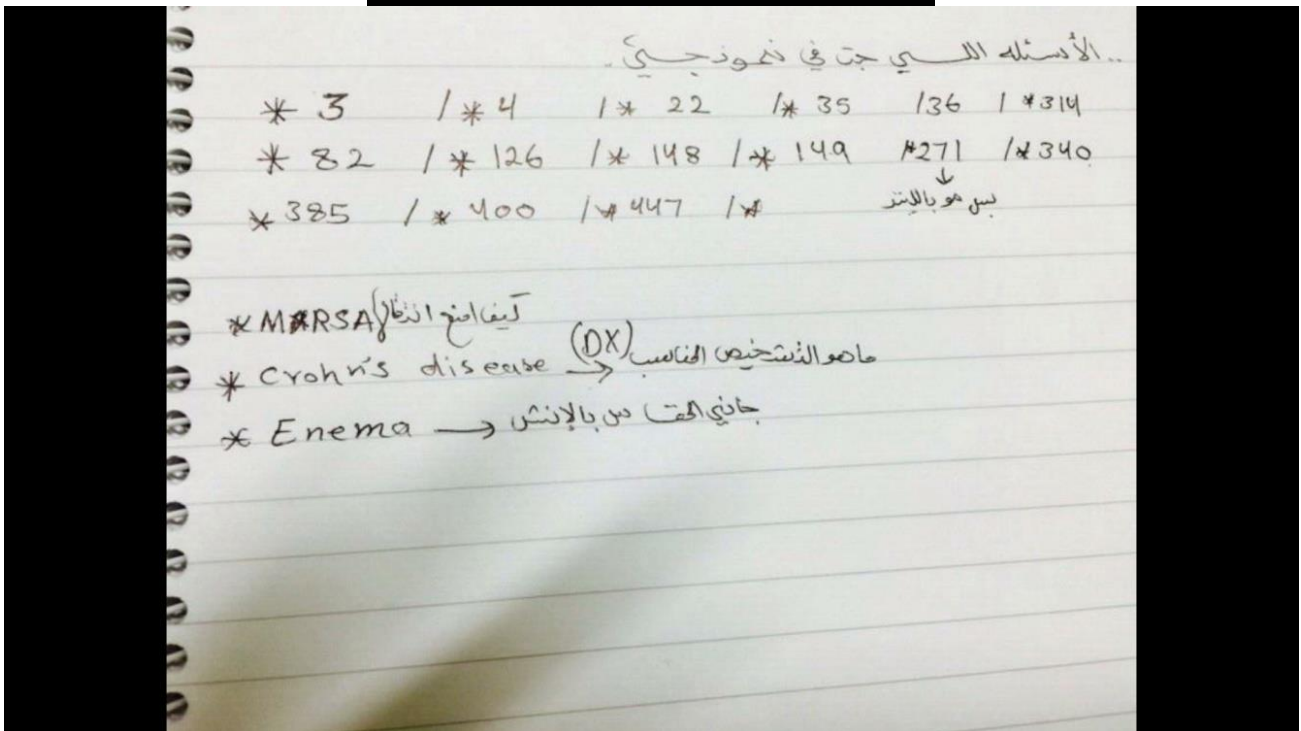 ..الأسئله اللي جت في نموذجي..
* 3 / * 4 / * 22 / * 35 / 36 / *314
* 82 / * 126 / * 148 / * 149 / *271 / *340
↓
بس مو باللیتر
* 385 / * 400 / * 447 / *
* MRSA كيف امنع انتقال
* Crohn's disease → (DX) ماهو التشخيص المناسب
* Enema → جاني المقاس بالإنش